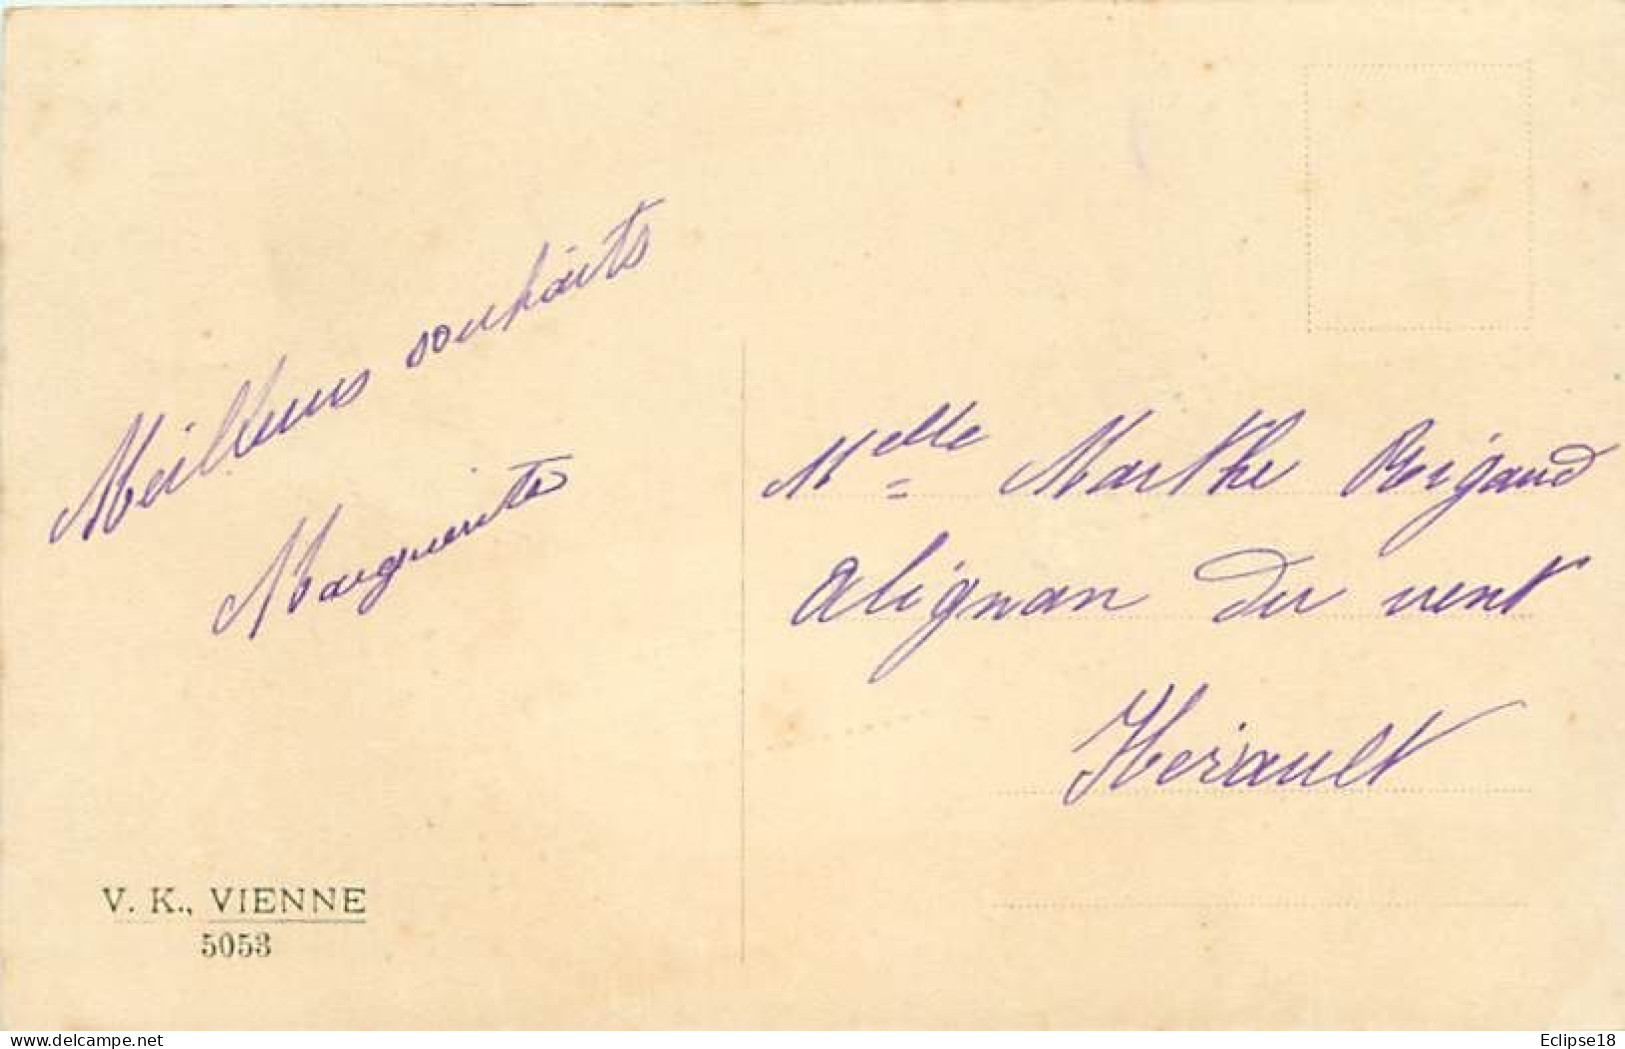 Meilleurs souhaits
Marguerite
Melle Marthe Rigaud
Alignan du vent
Herault
V. K., VIENNE
5053
www.delcampe.net
Eclipse18